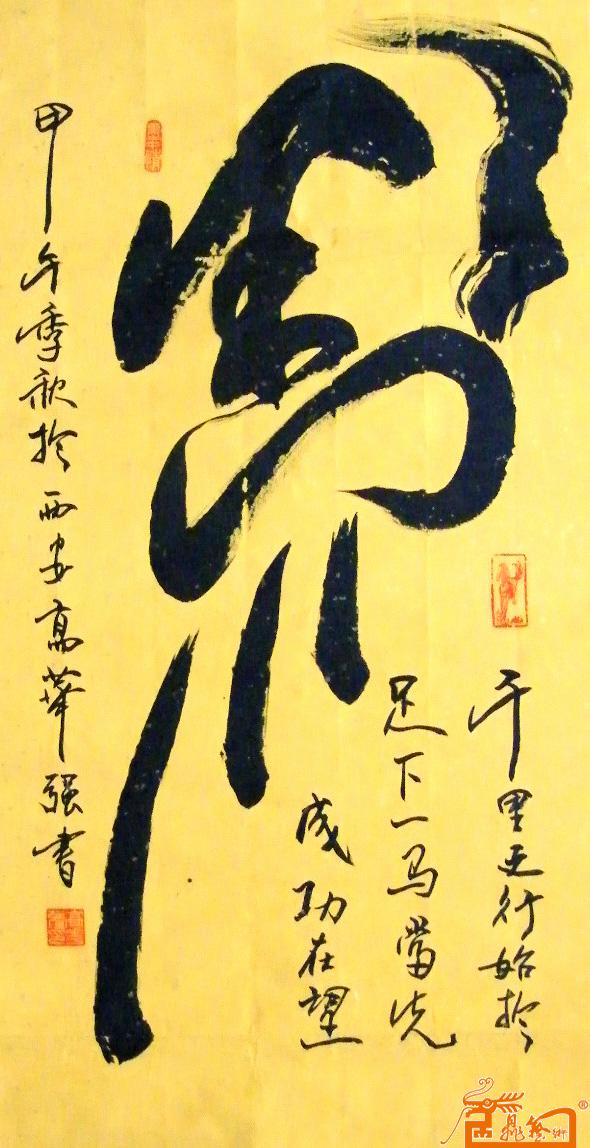 馬
千里之行始於
足下一马當先
成功在望
甲午季秋於西安高華强書